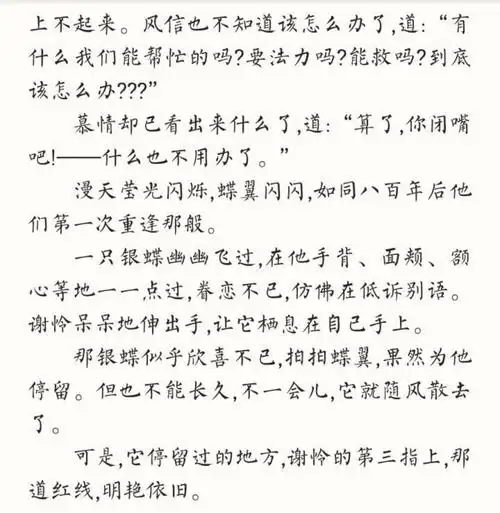 上不起来。风信也不知道该怎么办了,道:“有
什么我们能帮忙的吗?要法力吗?能救吗?到底
该怎么办???”
慕情却已看出来什么了,道:“算了,你闭嘴
吧!——什么也不用办了。”
漫天莹光闪烁,蝶翼闪闪,如同八百年后他
们第一次重逢那般。
一只银蝶幽幽飞过,在他手背、面颊、额
心等地一一点过,眷恋不已,仿佛在低诉别语。
谢怜呆呆地伸出手,让它栖息在自己手上。
那银蝶似乎欣喜不已,拍拍蝶翼,果然为他
停留。但也不能长久,不一会儿,它就随风散去
了。
可是,它停留过的地方,谢怜的第三指上,那
道红线,明艳依旧。